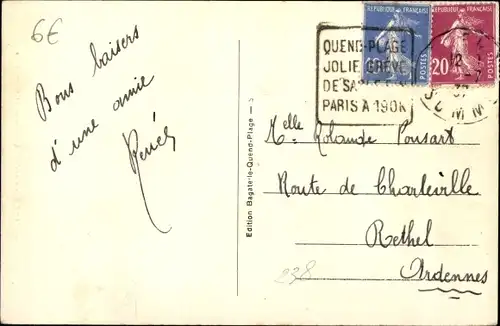 6€
Bons baisers
d'une amie
Renée
Edition Bagatelle-Quend-Plage — 5
REPUBLIQUE FRANÇAISE
POSTES
REPUBLIQUE FRANÇAISE
20
POSTES
QUEND-PLAGE
JOLIE GRÈVE
DE SABLE FIN
PARIS A 190K
12
37
SOMME
Melle Rolande Ponsart
Route de Charleville
Rethel
Ardennes
238